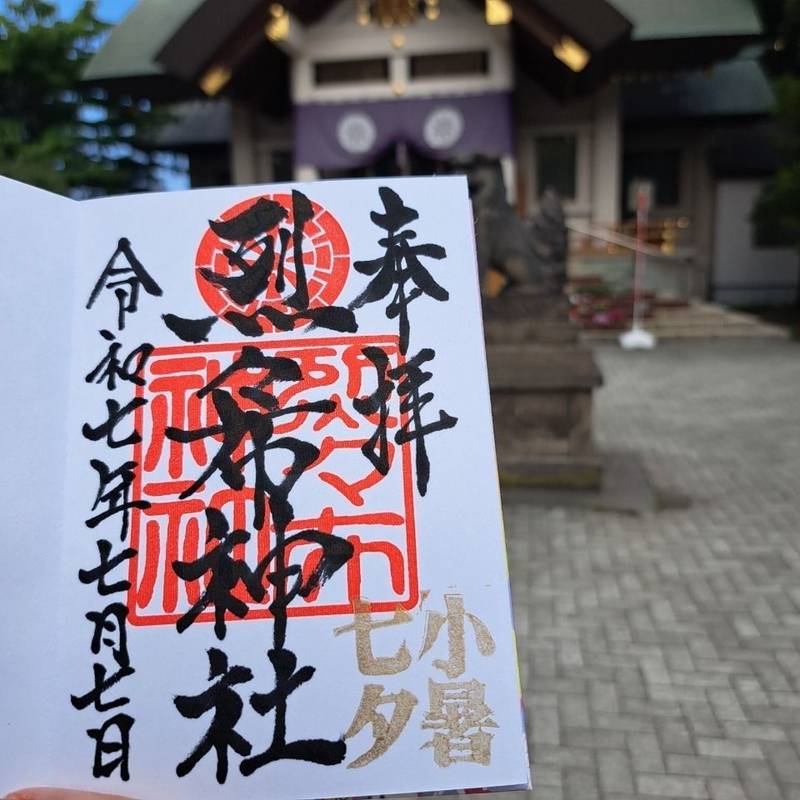 奉拝
烈々布神社
令和七年七月七日
烈々布
神社
小暑
七夕